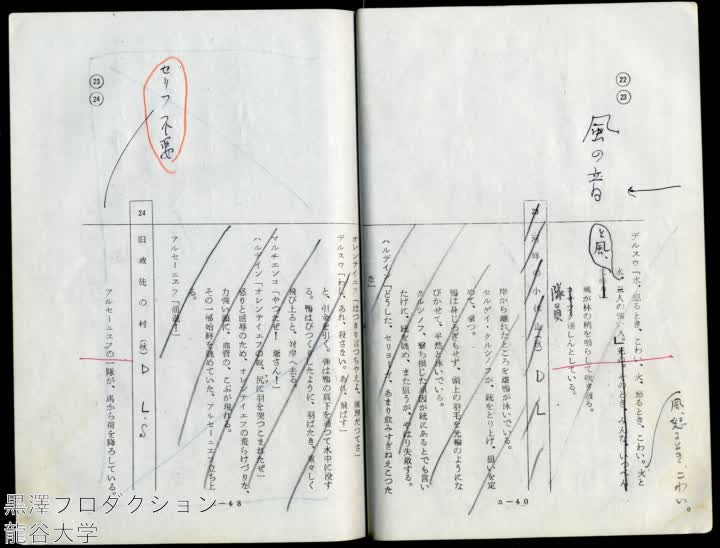 ㉒
㉓
風の音
デルスウ「水、怒るとき、こわい。火、怒るとき、こわい。火と
水、二人の強い人。
と風、
風が林の梢を鳴らして吹き渡る。
隊員
達しんとしている。
風怒るとき、こわい。
D L
岸から離れたところを雄鴨が泳いでいる。
セルゲイ・クルシノフが、銃をとり上げ、狙いを定
めて、撃つ。
鴨は身じろぎもせず、頭上の羽毛を光輪のようにな
びかせて、平然と泳いでいる。
クルシノフ、撃ち損じた原因が銃にあるとでも言い
たげに、銃を眺め、また狙うが、やはり失敗する。
ハルデイン「どうした、セリョージャ、あまり飲みすぎねえとつた
た」
2－40
㉓
㉔
セリフ不要
デルスウ「わし、あれ、殺さない。あれ、飛ばす」
と、引金を引く。弾は鴨の真下を通つて水中に没す
る。鴨はびつくりしたように、羽ばたき、重々しく
飛び上ると、対岸へ去る。
マルチエンコ「やつたぜ！爺さん！」
ハルデイン「オレンテイエフの奴、尻に羽を突つとまれたぜ」
怒りと屈辱のため、オレンテイエフの荒らけづりな、
力強い顔に、血管の、こぶが現れる。
その一部始終を眺めていた、アルセーニエフ、立ち上
る。
アルセーニエフ「前進！」
24
旧教徒の村（秋）D L.S
アルセーニエフの一隊が、馬から荷を降ろしている。
－48
黒澤プロダクション
龍谷大学